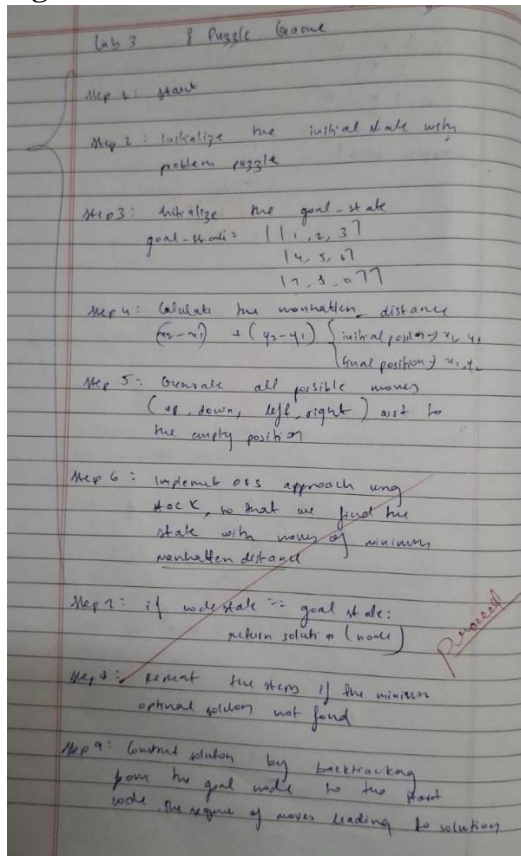 Lab 3 8 Puzzle Game
Step 1: start
Step 2: Initialize the initial state with
problem puzzle
Step 3: Initialize the goal-state
goal-state = [[1, 2, 3]
[4, 5, 6]
[7, 8, 0]]
Step 4: Calculate the manhatten distance
(x2-x1) + (y2-y1) { initial position → x1, y1
final position → x2, y2
Step 5: Generate all possible moves
(up, down, left, right) wrt to
the empty position
Step 6: Implement DFS approach using
stack, so that we find the
state with moves of minimum
manhatten distance
Step 7: if node state == goal state:
return solution (node)
Proceed
Step 8: repeat the steps if the minimum
optimal solution not found
Step 9: Construct solution by backtracking
from the goal node to the start
node. The sequence of moves leading to solution